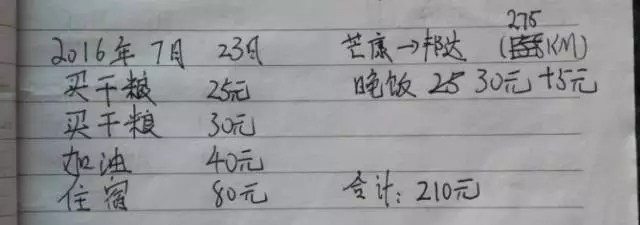 275
2016年 7月 23日 芒康→邦达 (KM)
买干粮 25元 晚饭 25 30元 +5元
买干粮 30元
加油 40元
住宿 80元 合计: 210元